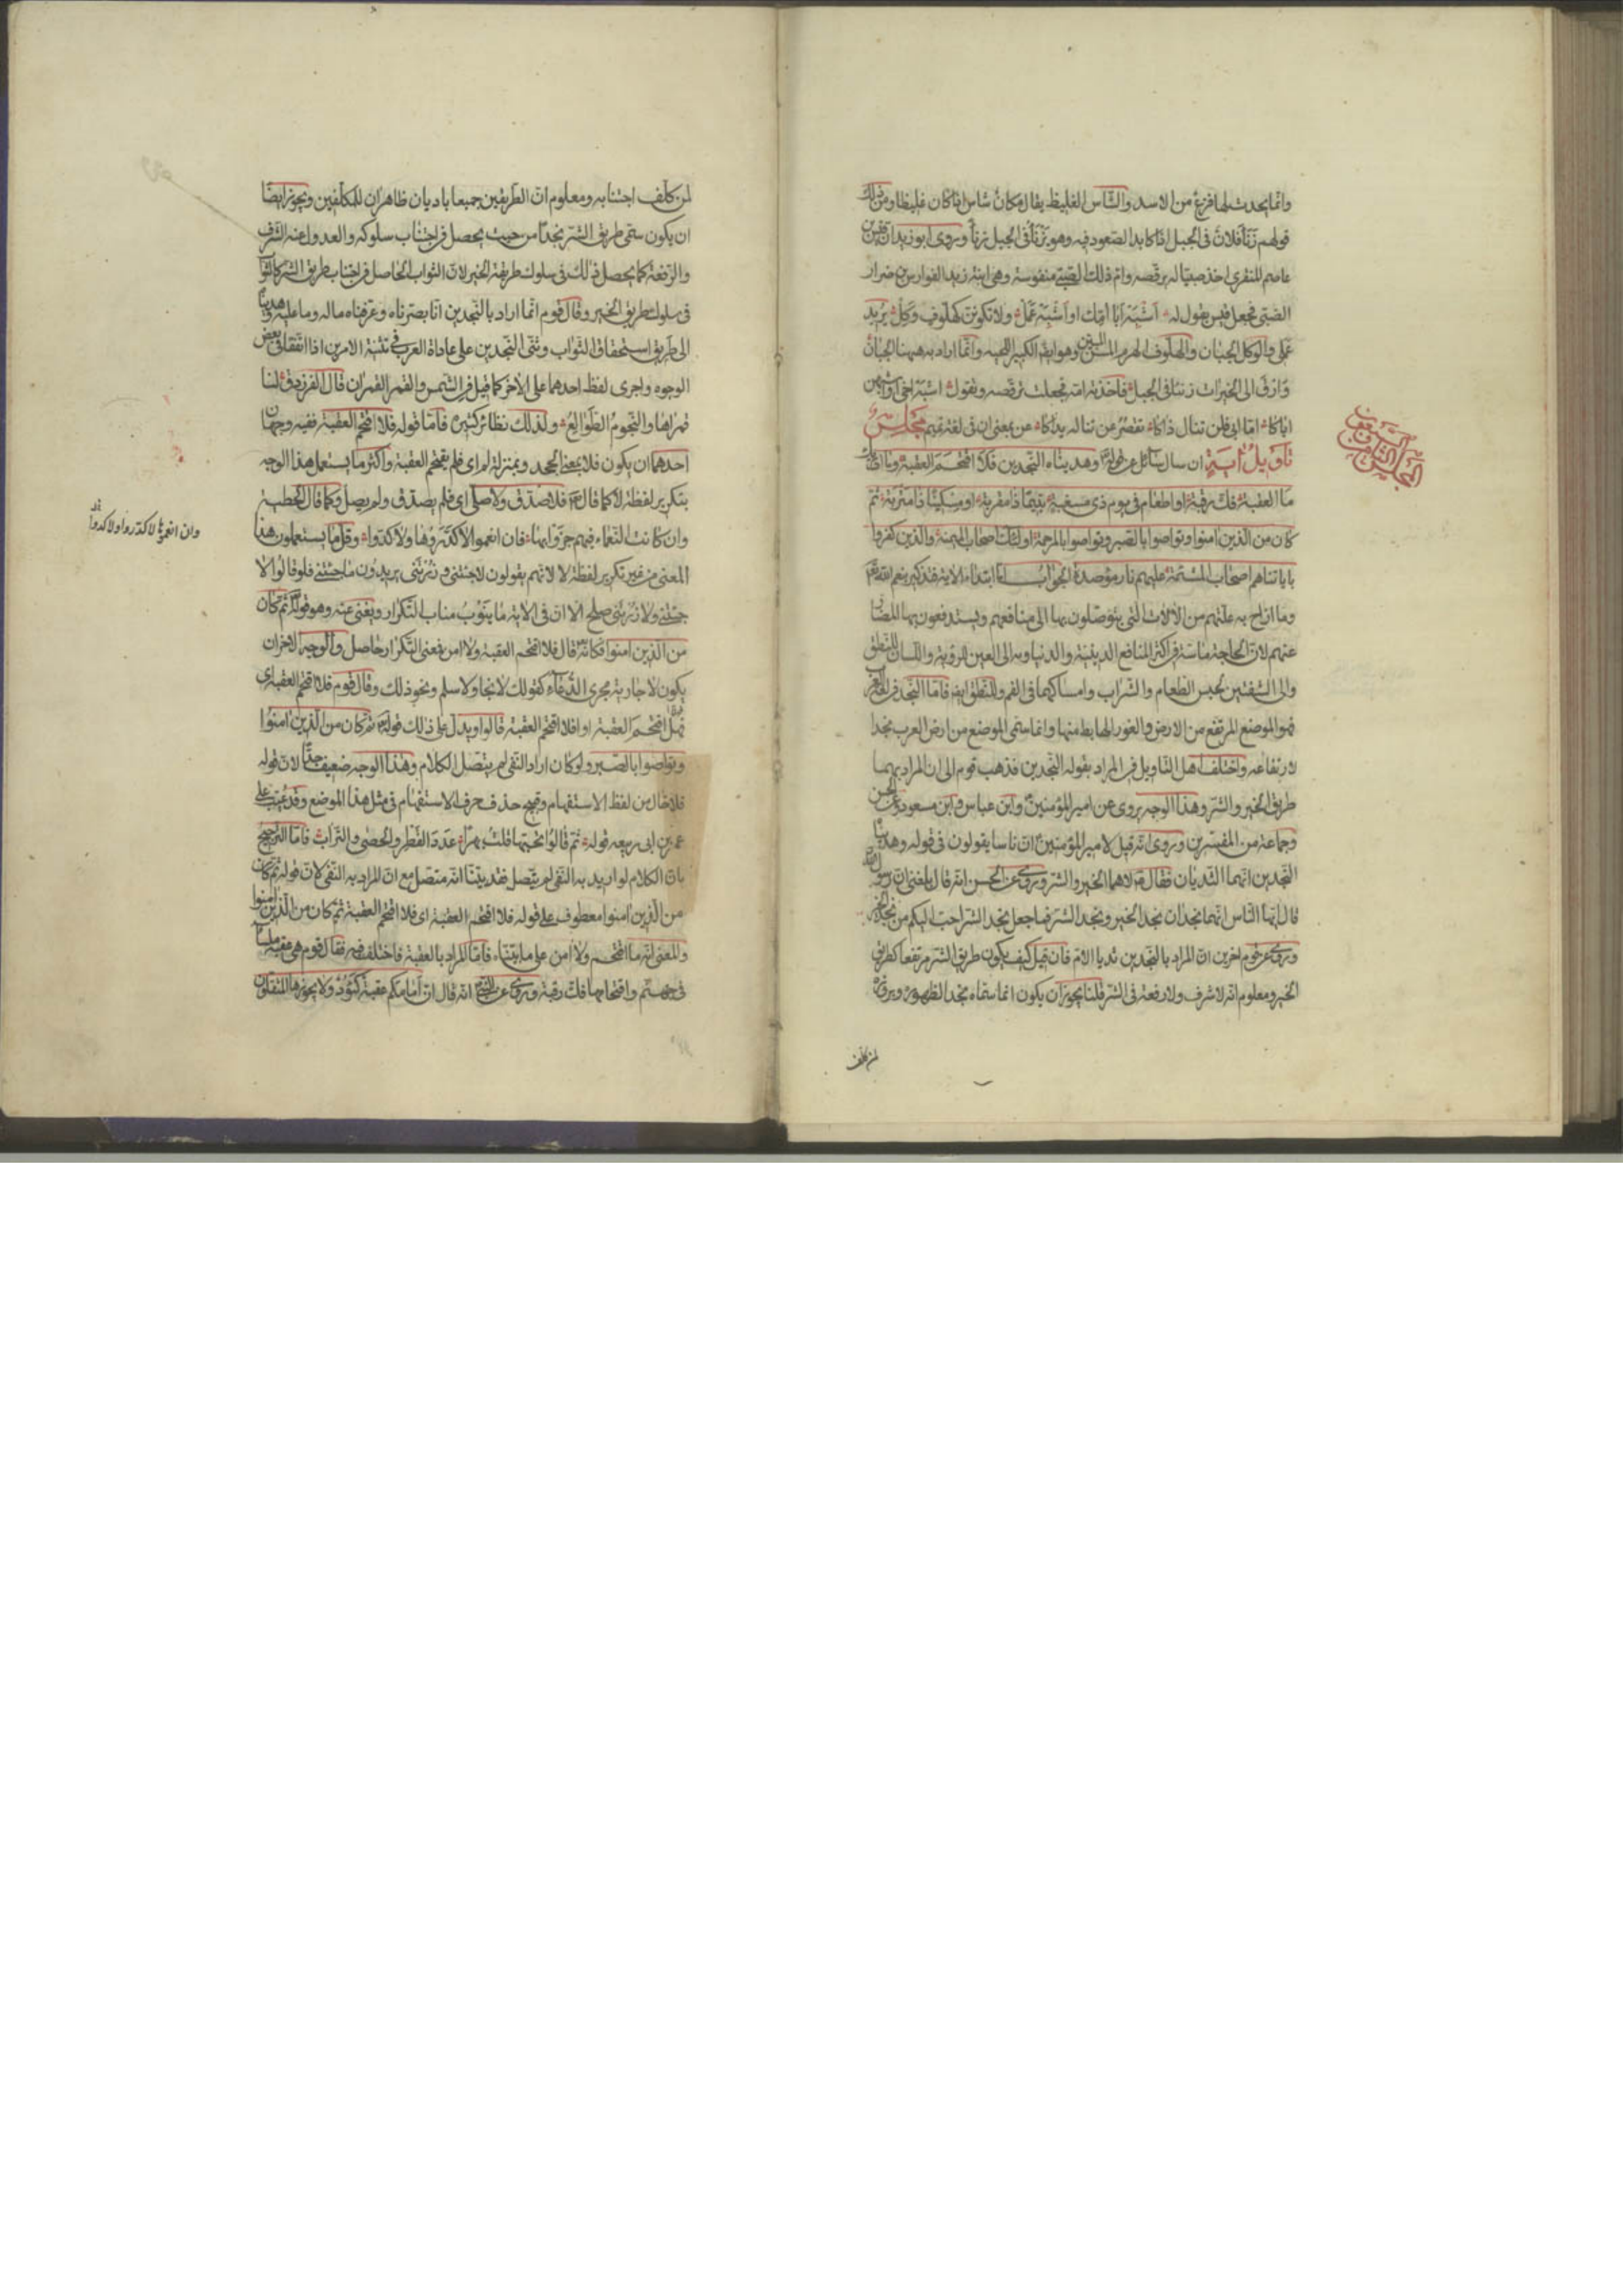 وانما يحدث لها فزع من الاسد والشاس الغليظ يقال مكان شاس اذا كان غليظا ومن ذلك
قولهم زنأ فلان في الجبل اذا كابد الصعود فيه وهو يزنأ في الجبل زنأ وروى ابو زيد ان قيس بن
عاصم المنقري اخذ صبيا له يرقصه وام ذلك الصبي منفوسة وهي ابنة زيد الفوارس بن ضرار
الضبي فجعل قيس يقول له اشبه ابا امك او اشبه عمل ولا تكونن كهلوف وكل يريد
عملي والوكل الجبان والهلوف الهرم المسن وهو ايضا الكبير اللحية وانما اراد به ههنا الجبان
وارق الى الخيرات زنئا في الجبل فاخذته امه فجعلت ترقصه وتقول اشبه اخي او اشبهن
اباكا اما ابي فلن تنال ذاكا تقصر عن تناله يداكا عن بمعنى ان في لغة تميم مجلس
تأويل آية ان سال سائل عن قوله وهديناه النجدين فلا اقتحم العقبة وما ادراك
ما العقبة فك رقبة او اطعام في يوم ذي مسغبة يتيما ذا مقربة او مسكينا ذا متربة ثم
كان من الذين امنوا وتواصوا بالصبر وتواصوا بالمرحمة اولئك اصحاب الميمنة والذين كفروا
باياتنا هم اصحاب المشئمة عليهم نار مؤصدة الجواب اما ابتداء الاية فتذكير بنعم الله
وما ازاح به علتهم من الالات التي يتوصلون بها الى منافعهم ويستدفعون بها المضار
عنهم لان الحاجة ماسة في اكثر المنافع الدينية والدنياوية الى العين للرؤية واللسان للنطق
والى الشفتين لحبس الطعام والشراب وامساكهما في الفم وللنطق ايضا فاما النجد في لغة العرب
فهو الموضع المرتفع من الارض والغور الهابط منها وانما سمي الموضع من ارض العرب نجدا
لارتفاعه واختلف اهل التاويل في المراد بقوله النجدين فذهب قوم الى ان المراد بهما
طريق الخير والشر وهذا الوجه يروى عن امير المؤمنين وابن عباس وابن مسعود والحسن
وجماعة من المفسرين وروى انه قيل لامير المؤمنين ان ناسا يقولون في قوله وهديناه
النجدين انهما الثديان فقال لا هما الخير والشر وروى عن الحسن انه قال بلغني ان رسول الله
قال ايها الناس انهما نجدان نجد الخير ونجد الشر فما جعل نجد الشر احب اليكم من نجد الخير
وروى عن قوم اخرين ان المراد بالنجدين ثديا الام فان قيل كيف يكون طريق الشر مرتفعا كطريق
الخير ومعلوم انه لا شرف ولا رفعة في الشر قلنا يجوز ان يكون انما سماه نجدا لظهوره وبروزه
لمن كلف
لمن كلف اجتنابه ومعلوم ان الطريقين جميعا باديان ظاهران للمكلفين ويجوز ايضا
ان يكون سمى طريق الشر نجدا من حيث يحصل في اجتناب سلوكه والعدول عنه الشرف
والرفعة كما يحصل ذلك في سلوك طريقة الخير لان الثواب الحاصل في اجتناب طريق الشر كالثواب
في سلوك طريق الخير وقال قوم انما اراد بالنجدين انا بصرناه وعرفناه ماله وما عليه وهديناه
الى طريق استحقاق الثواب وثنى النجدين على عادة العرب في تثنية الامرين اذا اتفقا في بعض
الوجوه واجرى لفظ احدهما على الاخر كما قيل في الشمس والقمر القمران قال الفرزدق لنا
قمراها والنجوم الطوالع ولذلك نظائر كثيرة فاما قوله فلا اقتحم العقبة ففيه وجهان
احدهما ان يكون فلا بمعنى الجحد وبمنزلة لم اي فلم يقتحم العقبة واكثر ما يستعمل هذا الوجه
بتكرير لفظة لا كما قال فلا صدق ولا صلى اي فلم يصدق ولم يصل وكما قال الحطيئة
وان كانت النعماء فيهم جزوا بها فان انعموا لا كدروها ولا كدوا وقل ما يستعملون هذا
المعنى من غير تكرير لفظة لا لانهم يقولون لا جئتني وزرتني يريدون ما جئتني فلو قالوا لا
جئتني ولا زرتني صلح الا ان في الاية ما ينوب مناب التكرار ويغني عنه وهو قوله ثم كان
من الذين امنوا فكانه قال فلا اقتحم العقبة ولا امن فمعنى التكرار حاصل والوجه الاخر ان
يكون لا جارية مجرى الدعاء كقولك لا نجا ولا سلم ونحو ذلك وقال قوم فلا اقتحم العقبة اي
فهلا اقتحم العقبة او افلا اقتحم العقبة قالوا ويدل على ذلك قوله ثم كان من الذين امنوا
وتواصوا بالصبر ولو كان اراد النفي لم يتصل الكلام وهذا الوجه ضعيف جدا لان قوله
فلا خال من لفظ الاستفهام وقبيح حذف حرف الاستفهام في مثل هذا الموضع وقد عيب على
عمر بن ابي ربيعه قوله ثم قالوا تحبها قلت بهرا عدد القطر والحصى والتراب فاما الترجيح
بان الكلام لو اريد به النفي لم يتصل فقد بينا انه متصل مع ان المراد به النفي لان قوله ثم كان
من الذين امنوا معطوف على قوله فلا اقتحم العقبة اي فلا اقتحم العقبة ثم كان من الذين امنوا
والمعنى انه ما اقتحم ولا امن على ما بيناه فاما المراد بالعقبة فاختلف فيه فقال قوم هي عقبة ملساء
في جهنم واقتحامها فك رقبة وروى عن النبي انه قال ان امامكم عقبة كئودا لا يجوزها المثقلون
وان انعموا لا كدروا ولا كدوا